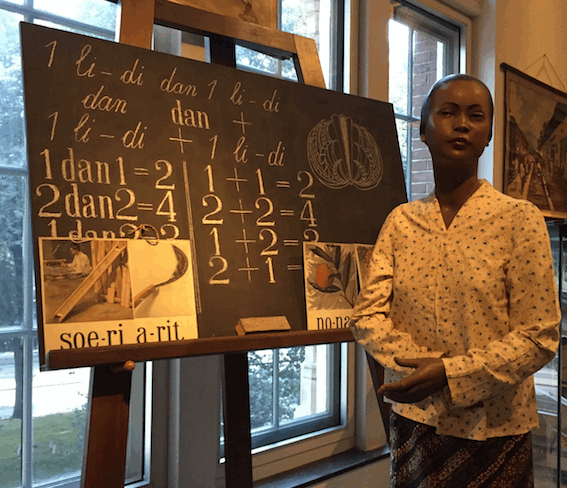 1 li-di dan 1 li-di
dan dan +
1 li-di + 1 li-di
1 dan 1 = 2
2 dan 2 = 4
1 dan 2 = 3
1 + 1 = 2
2 + 2 = 4
1 + 2 = 3
2 + 1 =
soe-ri a-rit